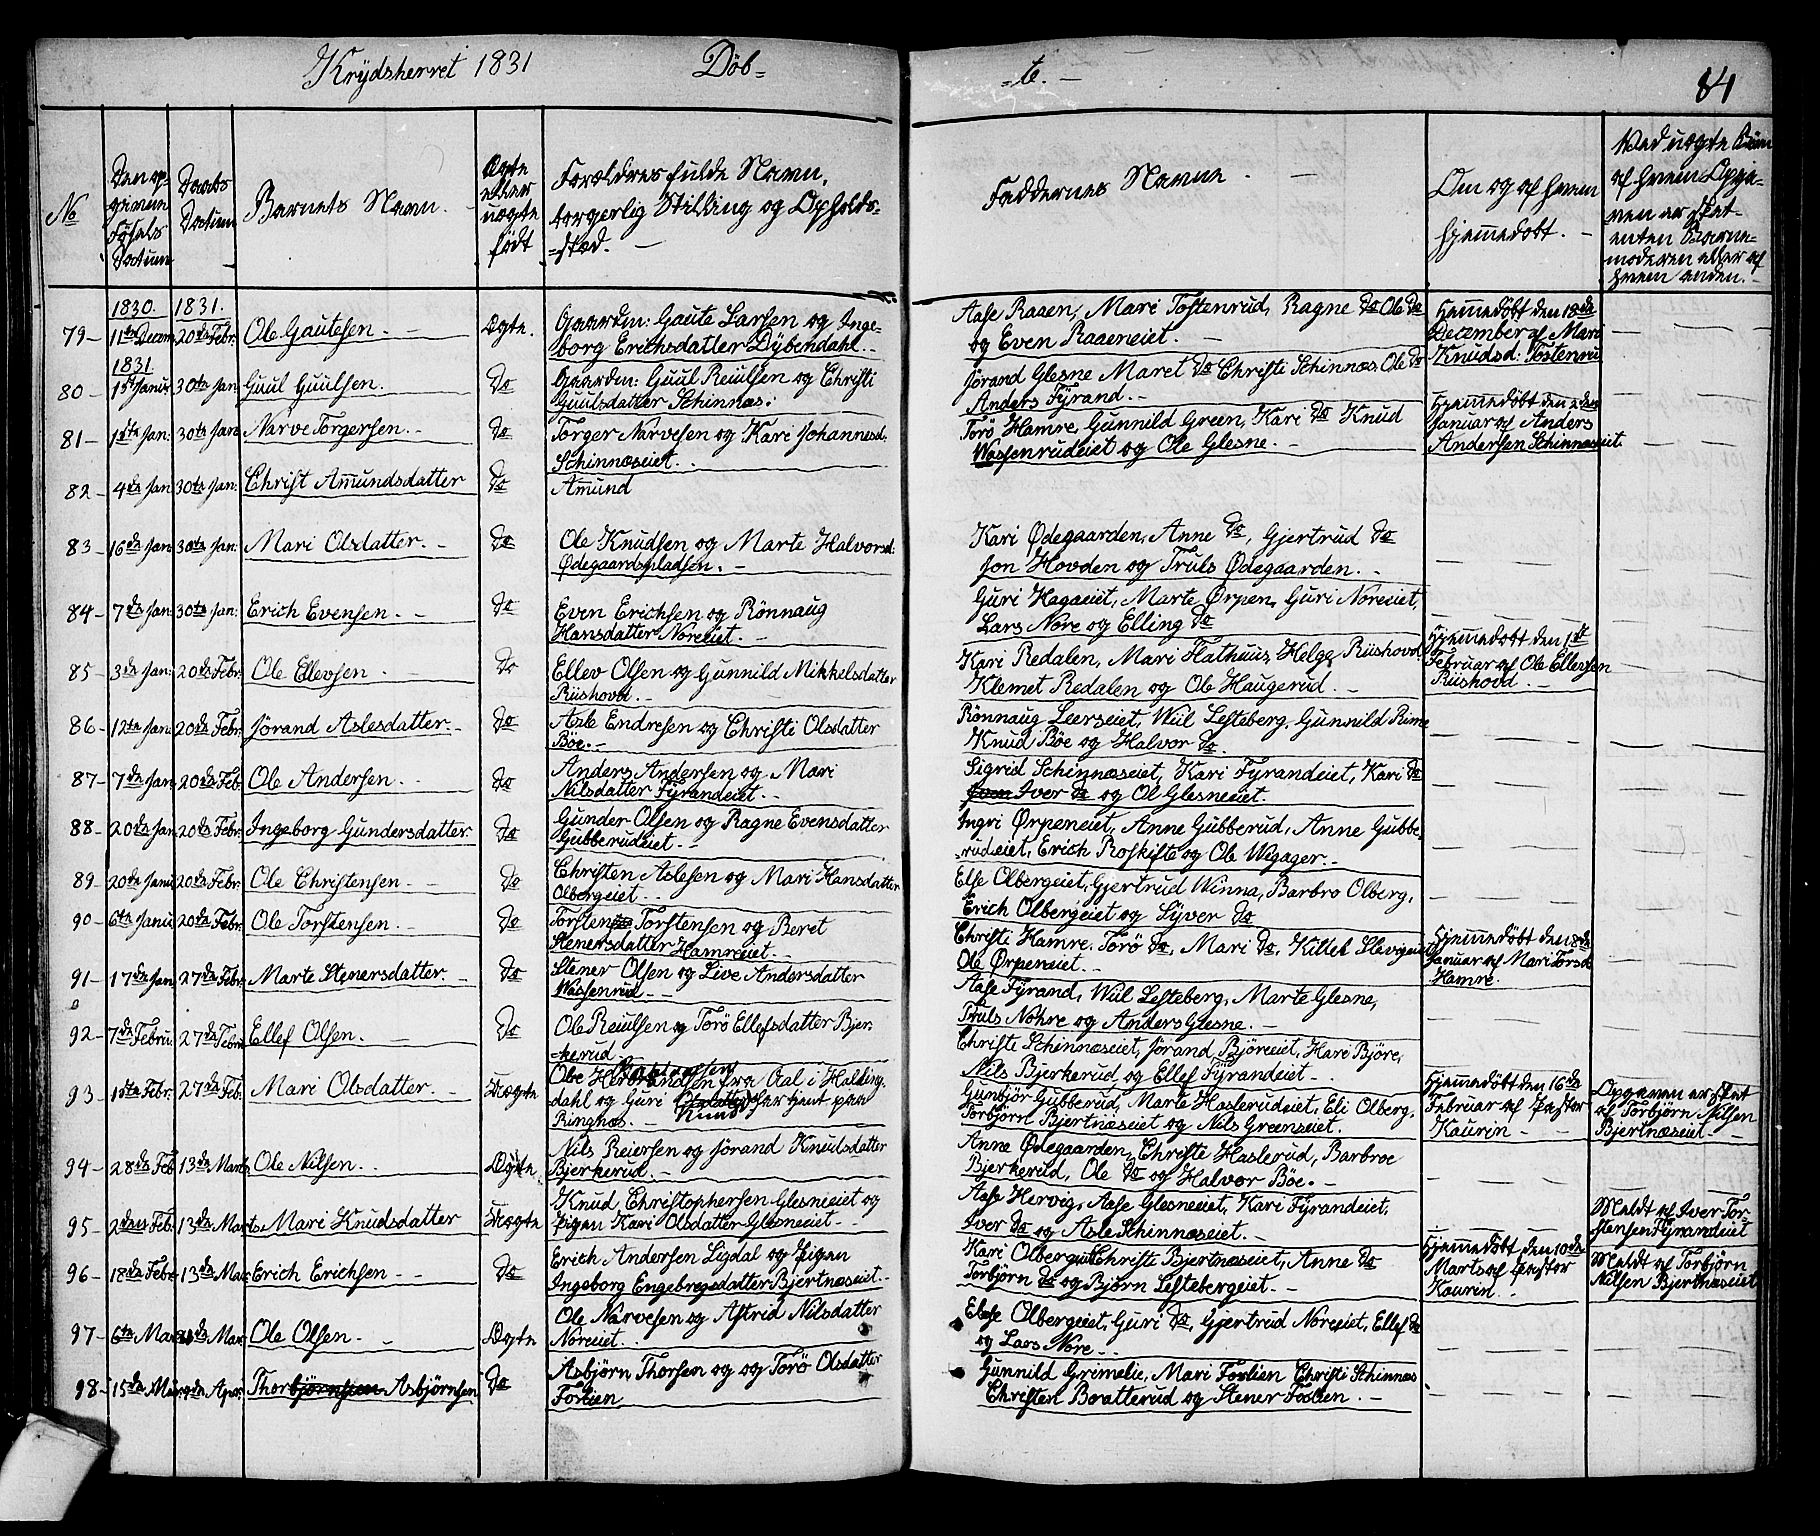 Krydsherret 1831
Döb-
-te.-
84
No
Den op-
givne
Fødsels
Datum
Daabs
Datum
Barnets Navn.
Ægte
eller
uægte
født
Forældres fulde Navn,
borgerlig Stilling og Opholds-
-sted.
Faddernes Navne.
Om og af hvem
hjemmedöbt.
Ved uægte Börn
af hvem Opgi-
ven er skeet-
enten Barne-
moderen eller af
hvem anden.
1830. 1831.
79- 11te Decem 20de Febr. Ole Gautesen. Ægte. Gaarden: Gaute Larsen og Inge-
borg Erichsdatter Dybendahl.
Aase Raaen, Mari Tostenrud, Ragne do Ole do
og Even Raaeneiet.
Hjemmedöbt den 18de
December af Mari
Knudsd: Tostenrud
1831
80- 1st Janür 30te Jan Guul Guulsen. do Gaarden: Guul Reiulsen og Christi
Guulsdatter Schinnæs.
Jörand Glesne Maret do Christi Schinnæs, Ole do
Anders Fyrand.
81- 1ste Jan: 30te Jan Narve Torgersen. do Torger Narvesen og Kari Johannesd:
Schinnæseiet.
Torö Hamre, Gunnild Green, Kari do Knud
Wassenrudeiet og Ole Glesne.
Hjemmedöbt den 2den
Januar af Anders
Andersen Schinnæseiet
82- 4de Jan 30te Jan: Christ Amundsdatter do Amund
83- 16de Jan 30te Jan: Mari Olsdatter. do Ole Knudsen og Marte Halvorsd:
Ødegaardspladsen.
Kari Ødegaarden, Anne do, Gjertrud do
Jon Hovden og Truls Ødegaarden.
84- 7de Jan: 30te Jan: Erich Evensen. do Even Erichsen og Rönnaug
Hansdatter Noreeiet.
Guri Hagaeiet, Marte Ørpen, Guri Noreeiet,
Lars Nore og Elling do
85- 3de Jan: 20de Febr. Ole Ellevsen do Ellev Olsen og Gunnild Mikkelsdatter
Riishovd.
Kari Redalen, Mari Flathuus, Helge Riishovd
Klemet Redalen og Ole Haugerud.
Hjemmedöbt den 1st
Februar af Ole Ellevsen
Riishovd.
86- 12te Jan: 20de Febr. Jörand Aslesdatter. do Asle Endresen og Christi Olsdatter
Böe.
Rönnaug Leerseiet, Wiil Lesteberg, Gunnild Rime
Knud Böe og Halvor do.
87- 7de Jan: 20de Feb. Ole Andersen. do Anders Andersen og Mari
Nilsdatter Fyrandeiet.
Sigrid Schinnæseiet, Kari Fyrandeiet, Kari do
Iver do og Ol Glesneeiet.
88- 20de Jan 20de Febr Ingeborg Gundersdatter do Gunder Olsen og Ragne Evensdatter
Gubberudeiet.
Ingri Ørpeneiet, Anne Gubberud, Anne Gubbe-
rudeiet, Erich Roskifte og Ole Wegager.
89- 20de Janü 20de Febr Ole Christensen. do Christen Aslesen og Mari Hansdatter
Olbergeiet.
Else Olbergeiet, Gjertrud Winna, Barbro Olberg,
Erich Olbergeiet og Syver do
90- 6te Janü 20de Febr. Ole Torstensen. do Torsten Torstensen og Beret
Stenersdatter Hamreeiet.
Christi Hamre, Torö do, Mari do, Killef Slevigeiet
Ole Ørpeneiet.
Hjemmedöbt den 8de
Januar af Mari Torsd:
Hamre.
91- 17de Jan 27de Febr. Marte Stenersdatter. do Stener Olsen og Live Andersdatter
Wassenrud.
Aase Fyrand, Wiil Lesteberg, Marte Glesne,
Truls Nohre og Anders Glesne.
92- 7de Febru: 27de Febru Ellef Olsen. do Ole Reiulsen og Torö Ellefsdatter Bjer-
-kerud
Christi Schinnæseiet, Jörand Björeeiet, Hari Björe,
Nils Bjerkerud og Ellef Fyrandeiet.
93- 10te Febr: 27de Feb. Mari Olsdatter. Uægte Ole Herbrandsen fra Aal i Halding-
dahl og Guri Knuds har tjent paa
Ringnæs.
Gunbjör Gubberud, Marte Haslerudeiet, Eli Olberg,
Torbjörn Bjertnæseiet og Nils Greenseiet.
Hjemmedöbt den 16de
Februar af Pastor
Kaurin.
Opgaven er skeet
af Torbjörn Nilsen
Bjertnæseiet
94- 28de Feb 13de Marts Ole Nilsen. Ægte Nils Reiersen og Jörand Knudsdatter
Bjerkerud.
Anne Ødegaarden, Christi Haslerud, Barbroe
Bjerkerud, Ole do og Halvor Böe.
95- 2den Feb. 13de Marts. Mari Knudsdatter Uægte Knud Christophersen Glesneeiet og
Pigen Kari Olsdatter Glesneeiet
Aase Hervig, Aase Glesneeiet, Kari Fyrandeiet,
Iver do og Asle Schinnæseiet.
Meldt af Iver Tor-
stensen Fyrandeiet
96- 18de Febr 13de Mar: Erich Erichsen do Erich Andersen Sigdal og Pigen
Ingeborg Engebregtsdatter Bjertnæseiet.
Kari Olbergeiet Christi Bjertnæseiet, Anne do
Torbjörn do og Björn Lestebergeiet.
Hjemmedöbt den 10de
Marts af Pastor
Kaurin.
Meldt af Torbjörn
Nilsen Bjertnæseiet
97- 6te Mar: Mar: Ole Olsen. Ægte Ole Narvesen og Astrid Nilsdatter
Noreeiet.
Else Olbergeiet, Guri do, Gjertrud Noreeiet, Ellef do
og Lars Nore.
98- 15de Mar Apr: Thorbjörnsen Asbjörnsen do Asbjörn Thorsen og og Torö Olsdatter
Foslien
Gunnild Grimelie, Mari Foslien Christi Schinnæs
Christen Bratterud og Stener Foslien.